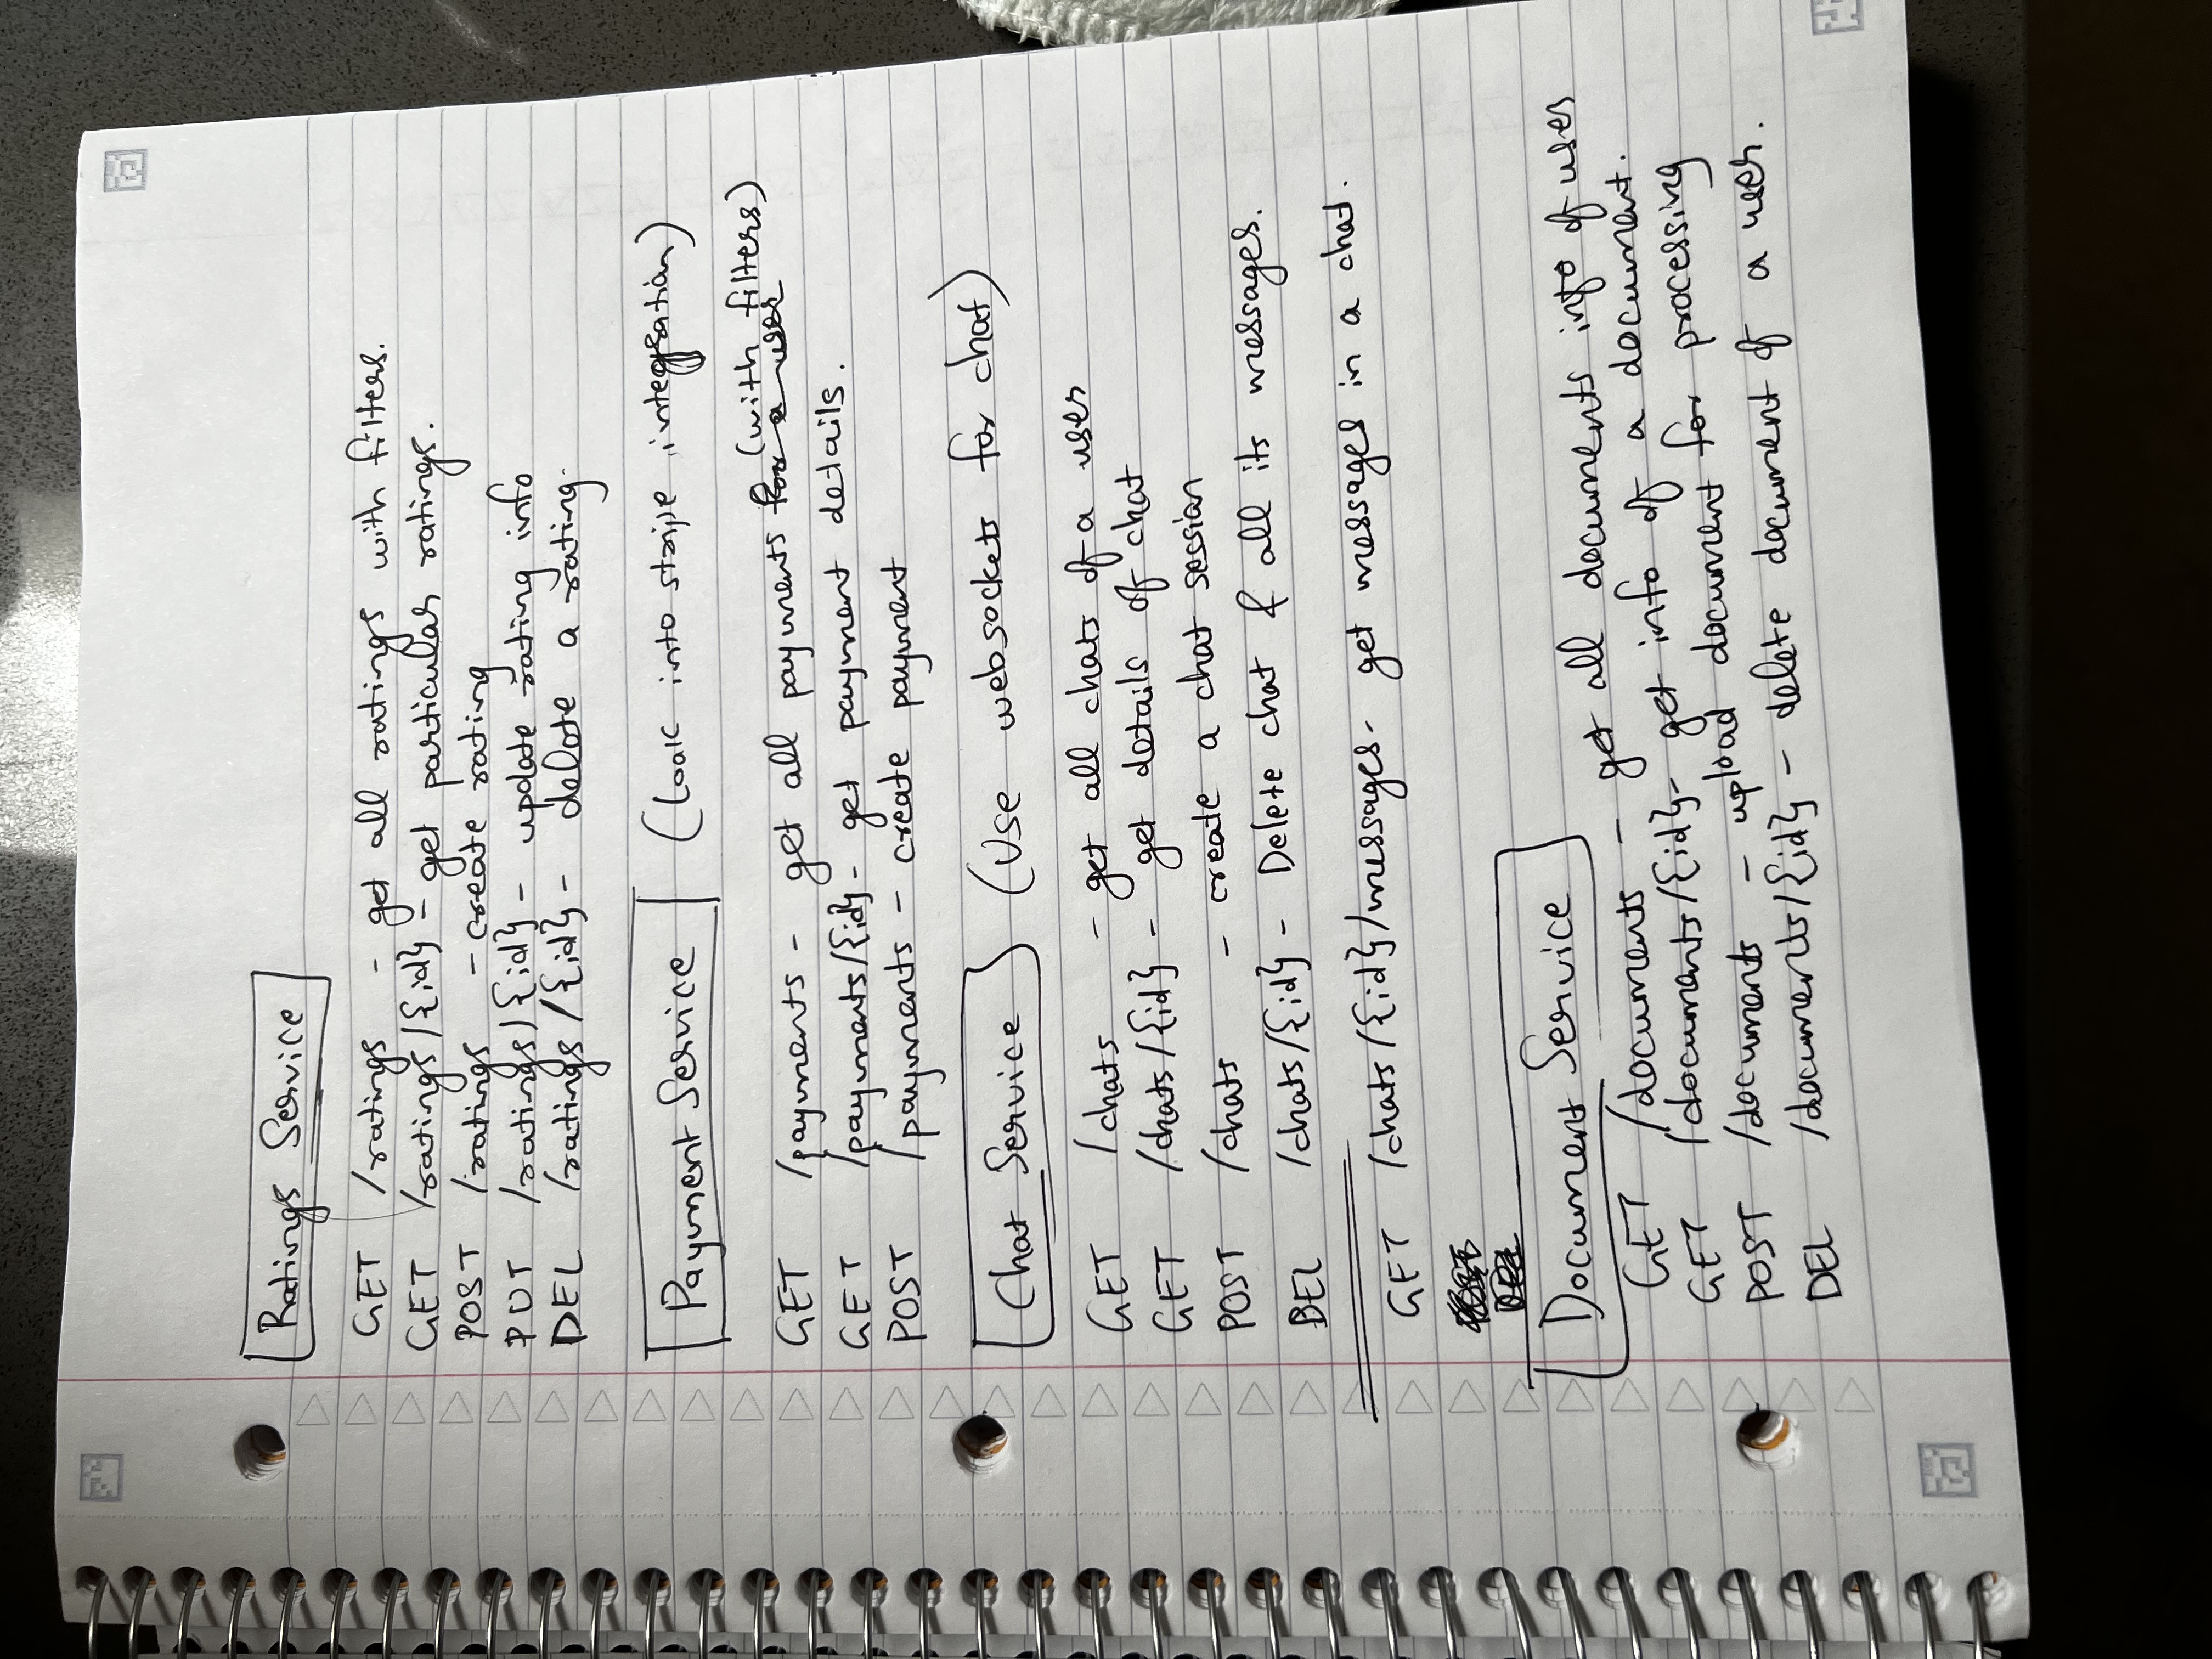 Ratings Service
GET /ratings - get all ratings with filters.
GET /ratings/{id} - get particular ratings.
POST /ratings - create rating
PUT /ratings/{id} - update rating info
DEL /ratings/{id} - delete a rating.
Payment Service (Look into stripe integration)
GET /payments - get all payments for a user (with filters)
GET /payments/{id} - get payment details.
POST /payments - create payment
Chat Service (Use websockets for chat)
GET /chats - get all chats of a user
GET /chats/{id} - get details of chat
POST /chats - create a chat session
DEL /chats/{id} - Delete chat & all its messages.
GET /chats/{id}/messages - get messages in a chat.
POST
DEL
Document Service
GET /documents - get all documents info of user
GET /documents/{id} - get info of a document.
POST /documents - upload document for processing
DEL /documents/{id} - delete document of a user.